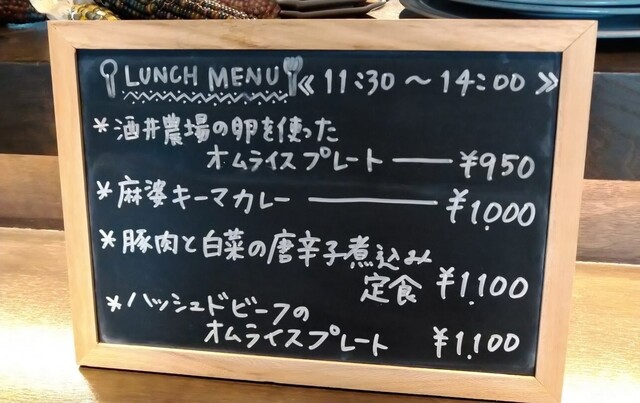 LUNCH MENU 《 11:30 〜 14:00 》
* 酒井農場の卵を使った
オムライスプレート — ¥950
* 麻婆キーマカレー — ¥1,000
* 豚肉と白菜の唐辛子煮込み
定食 ¥1,100
* ハッシュドビーフの
オムライスプレート ¥1,100